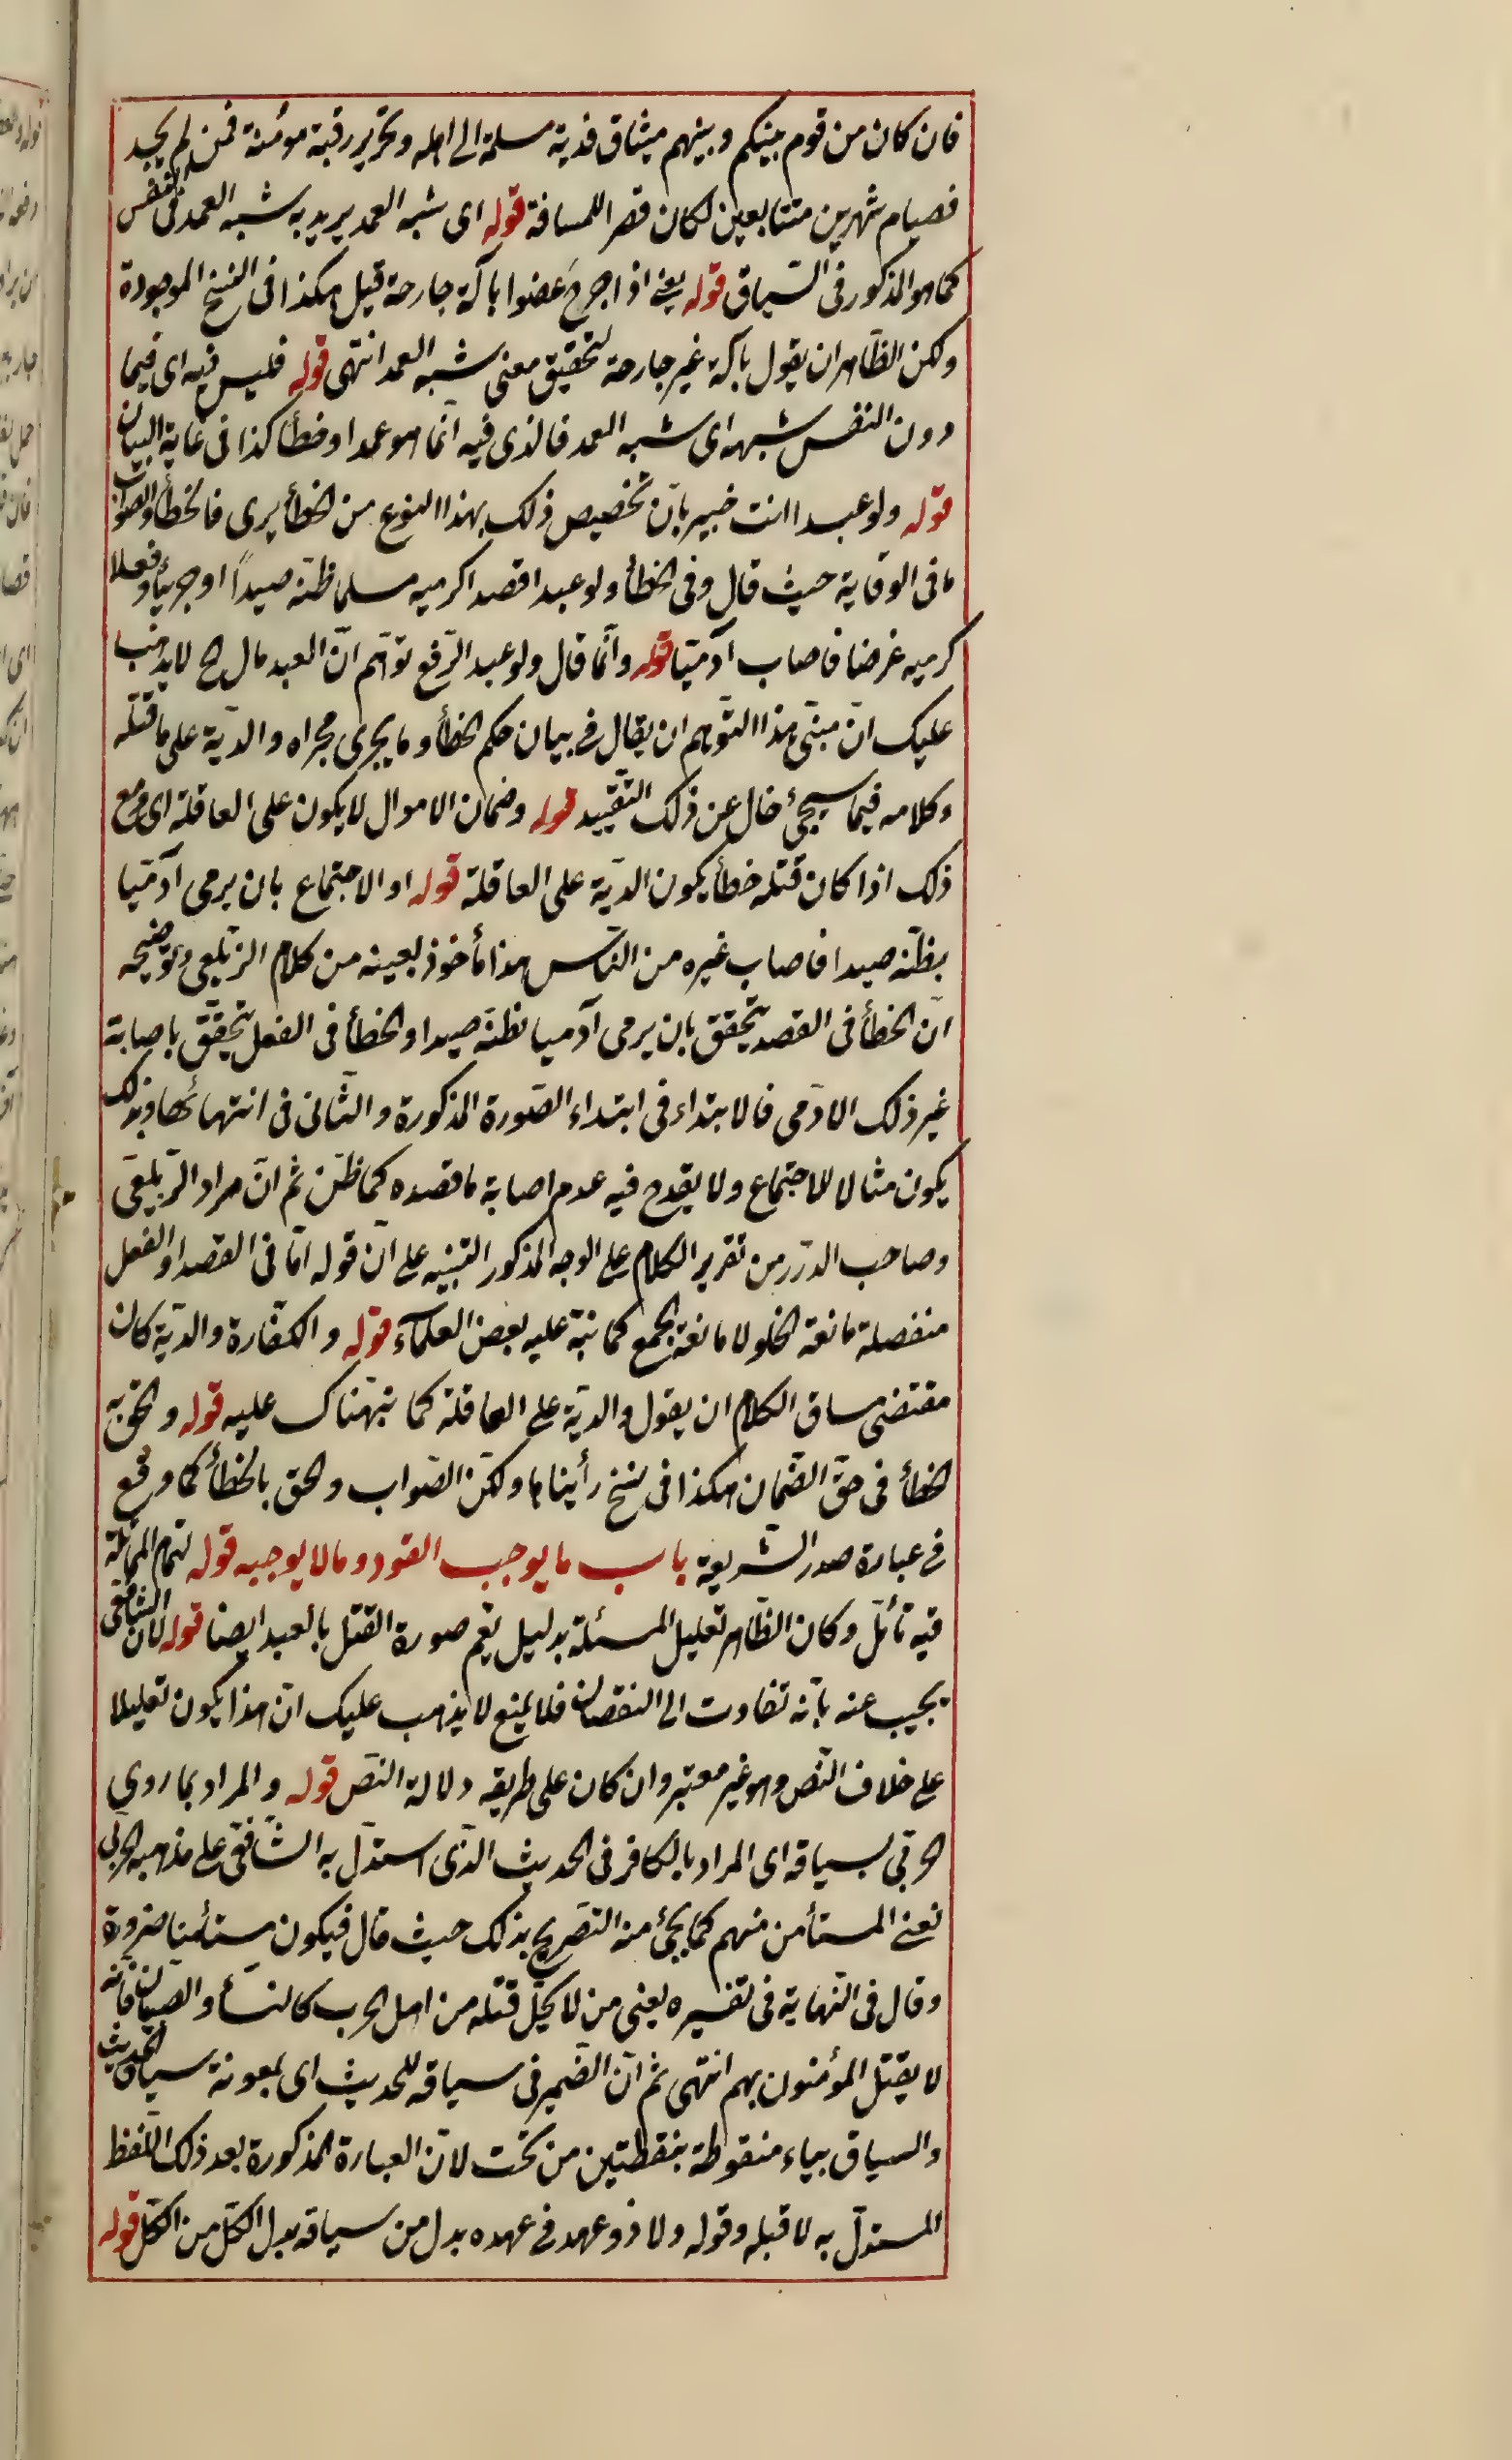 فان كان من قوم بينكم وبينهم ميثاق فدية مسلمة الى اهله وتحرير رقبة مؤمنة فمن لم يجد
فصيام شهرين متتابعين لكان قصر اللمسافة قوله اى شبه العمد يريد به شبه العمد فى النفس
كما هو المذكور فى السياق قوله يعنى اذا جرح عضوا بآلة جارحة قيل هكذا فى النسخ الموجودة
ولكن الظاهر ان يقول بآلة غير جارحة لتحقيق معنى شبه العمد انتهى قوله فليس فيه اى فيما
دون النفس شبهه اى شبه العمد فالذى فيه انما هو عمد او خطأ كذا فى غاية البيان
قوله ولو عبدا انت خبير بان تخصيص ذلك بهذا النوع من الخطأ يرى فالخطأ والصواب
ما فى الوقاية حيث قال وفى الخطأ ولو عبدا قصدا كرميه مسلما ظنه صيدا او حربيا وفعلا
كرميه غرضا فاصاب آدميا قوله وانما قال ولو عبد الرفع توهم ان العبد مال الخ لا يذهب
عليك ان مبنى هذا التوهم ان يقال فى بيان حكم الخطأ وما يجرى مجراه والدية على ما قتله
وكلامه فيما سيجئ خال عن ذلك التقييد قوله وضمان الاموال لا يكون على العاقلة اى ومع
ذلك اذا كان قتله خطأ يكون الدية على العاقلة قوله او الاجتماع بان يرمى آدميا
بظنه صيدا فاصاب غيره من الناس هذا مأخوذ بعينه من كلام الزيلعى وتوضيحه
ان الخطأ فى القصد يتحقق بان يرمى آدميا نظنه صيدا والخطأ فى الفعل يتحقق باصابة
غير ذلك الآدمى فالابتداء فى ابتداء الصورة المذكورة والثانى فى انتهائها وبذلك
يكون مثالا للاجتماع ولا يقدح فيه عدم اصابة ما قصده كما ظن ثم ان مراد الزيلعى
وصاحب الدرر من تقرير الكلام على الوجه المذكور التنبيه على ان قوله اما فى القصد او الفعل
منفصلة مانعة الخلو لا مانعة الجمع كما نبه عليه بعض العلماء قوله والكفارة والدية كان
مقتضى مساق الكلام ان يقول والدية على العاقلة كما نبهناك عليه قوله والحق به
الخطأ فى حق الضمان هكذا فى نسخ رأيناها ولكن الصواب والحق بالخطأ كما وقع
فى عبارة صدر الشريعة باب ما يوجب القود وما لا يوجبه قوله لتمام المماثلة
فيه تأمل وكان الظاهر تعليل المسئلة بدليل يعم صورة القتل بالعبد ايضا قوله لان الشافعى
يجيب عنه بانه تفاوت الى النقصان فلا يمنع لا يذهب عليك ان هذا يكون تعليلا
على خلاف النص وهو غير معتبر وان كان على طريقه دلالة النص قوله والمراد بما روى
الحربى لسياقه اى المراد بالكافر فى الحديث الذى استدل به الشافعى على مذهبه الحربى
نعنى المستأمن منهم كما يجئ منه التصريح بذلك حيث قال فيكون مستأمنا ضرورة
وقال فى النهاية فى تفسيره يعنى من لا يحل قتله من اهل الحرب كالنسأ والصبيان فانه
لا يقتل المؤمنون بهم انتهى ثم ان الضمير فى سياقه للحديث اى بمعونة سياق الحديث
والسياق بياء منقوطة بنقطتين من تحت لان العبارة المذكورة بعد ذلك اللفظ
المستدل به لا قبله وقوله ولا ذو عهد فى عهده بدل من سياقه بدل الكل من الكل قوله